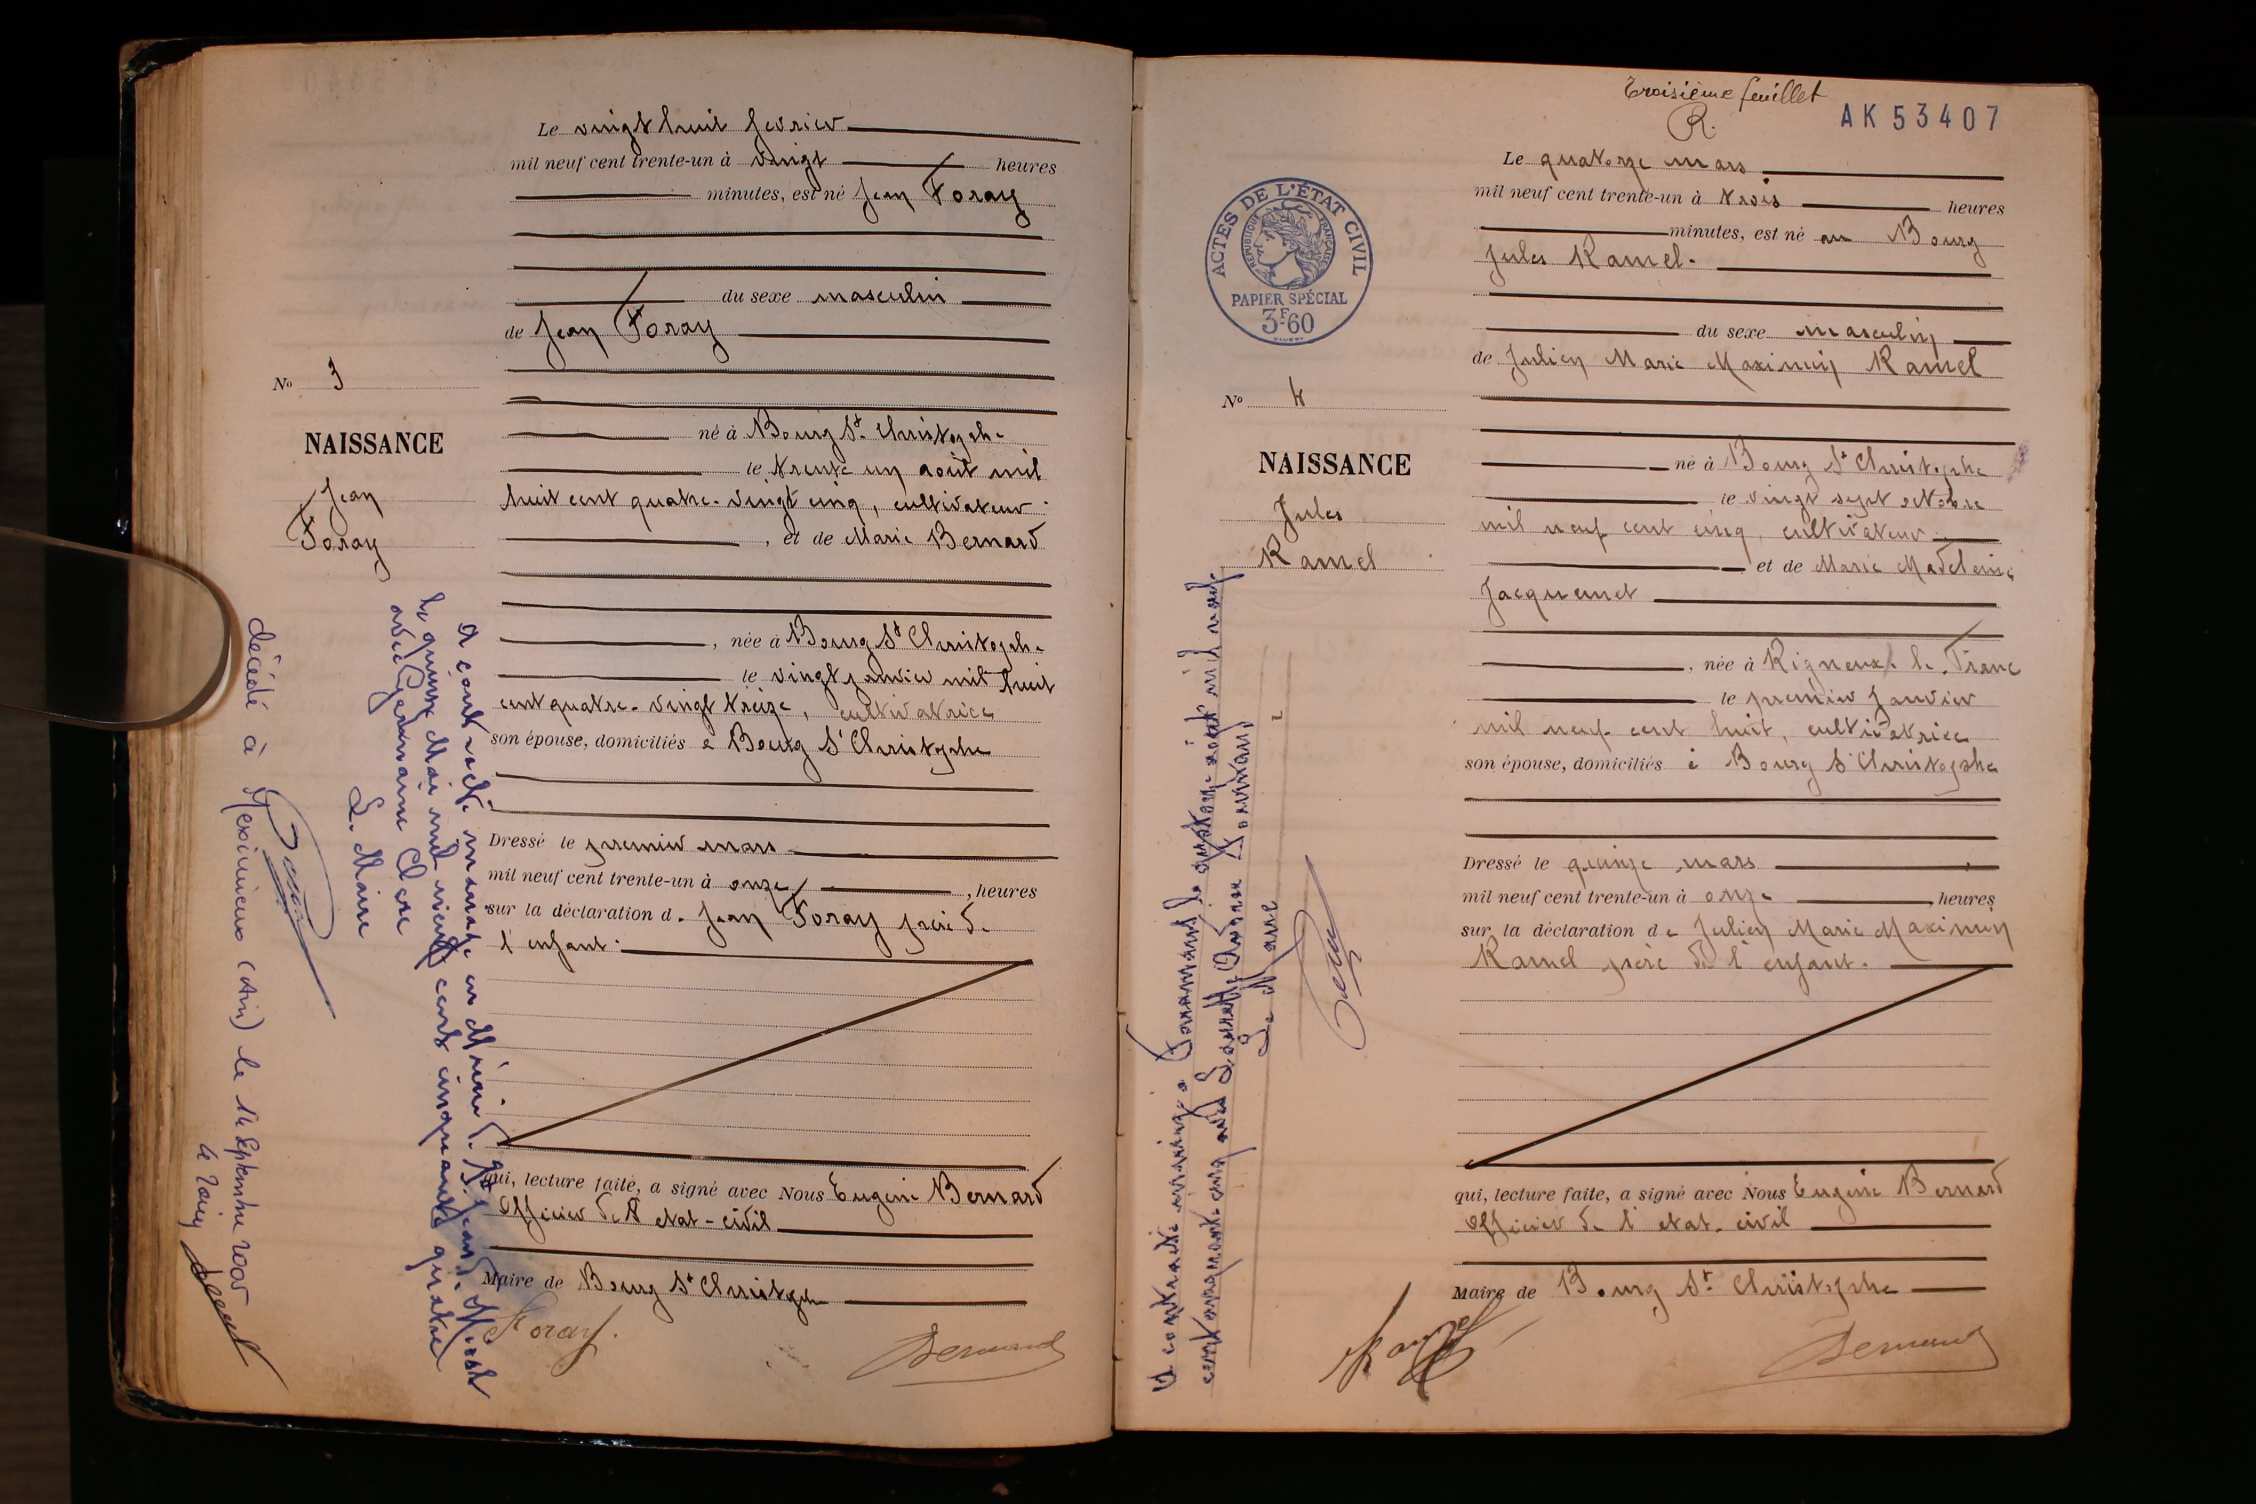 Le vingt huit fevrier
mil neuf cent trente-un à vingt heures
minutes, est né Jean Foray
du sexe masculin
de Jean Foray
No 3
NAISSANCE
Jean
Foray
né à Bourg St Christophe
le trente un août mil
huit cent quatre-vingt cinq, cultivateur
, et de Marie Bernard
, née à Bourg St Christophe
le vingt janvier mil huit
cent quatre-vingt treize, cultivatrice
son épouse, domiciliés à Bourg St Christophe
Dressé le premier mars
mil neuf cent trente-un à onze, heures
sur la déclaration de Jean Foray père de
l'enfant.
qui, lecture faite, a signé avec Nous Eugène Bernard
Officier de l'etat-civil
Maire de Bourg St Christophe
Foray.
Bernard
a contracté mariage
le quinze Mai mil neuf cent cinquante quatre
avec Germaine
Le Maire
décédé à Meximieux (Ain) le 14 Septembre 2005
Le Maire
Troisième feuillet
R.
AK 53407
ACTES DE L'ÉTAT CIVIL
RÉPUBLIQUE FRANÇAISE
PAPIER SPÉCIAL
3F.60
Le quatorze mars
mil neuf cent trente-un à trois heures
minutes, est né au Bourg
Jules Ramel.
du sexe masculin
de Julien Marie Maximin Ramel
No 4
NAISSANCE
Jules
Ramel
né à Bourg St Christophe
le vingt sept octobre
mil neuf cent cinq, cultivateur
et de Marie Madeleine
Jacquemet
, née à Rigneux-le-Franc
le premier janvier
mil neuf cent huit, cultivatrice
son épouse, domiciliés à Bourg St Christophe
Dressé le quinze mars
mil neuf cent trente-un à onze heures
sur la déclaration de Julien Marie Maximin
Ramel père de l'enfant.
qui, lecture faite, a signé avec Nous Eugène Bernard
Officier de l'etat-civil
Maire de Bourg St Christophe
Ramel
Bernard
A contracté mariage à le quatorze août mil neuf
cent cinquante cinq avec
Le Maire